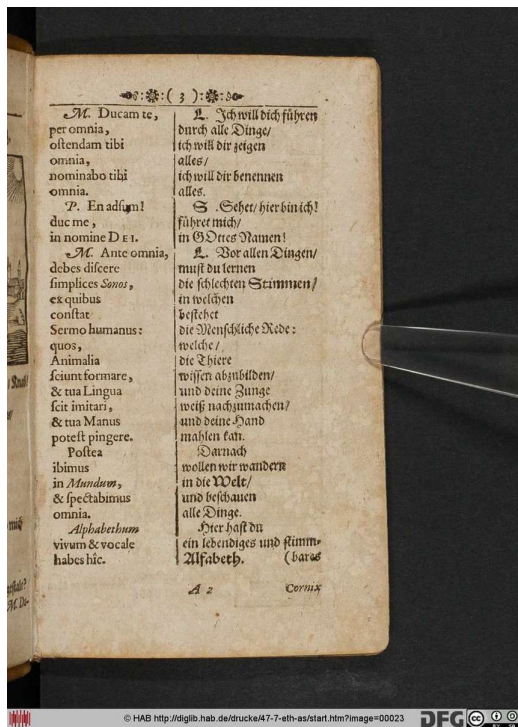 :( 3 ):
M. Ducam te,
per omnia,
oſtendam tibi
omnia,
nominabo tibi
omnia.
P. En adſum!
duc me,
in nomine DEI.
M. Ante omnia,
debes diſcere
ſimplices Sonos,
ex quibus
conſtat
Sermo humanus:
quos,
Animalia
ſciunt formare,
& tua Lingua
ſcit imitari,
& tua Manus
poteſt pingere.
Poſtea
ibimus
in Mundum,
& ſpectabimus
omnia.
Alphabethum
vivum & vocale
habes hîc.
L. Ich will dich führen
durch alle Dinge/
ich will dir zeigen
alles/
ich will dir benennen
alles.
S. Sehet/ hier bin ich!
führet mich/
in GOttes Namen!
L. Vor allen Dingen/
muſt du lernen
die ſchlechten Stimmen/
in welchen
beſtehet
die Menſchliche Rede:
welche/
die Thiere
wiſſen abzubilden/
und deine Zunge
weiß nachzumachen/
und deine Hand
mahlen kan.
Darnach
wollen wir wandern
in die Welt/
und beſchauen
alle Dinge.
Hier haſt du
ein lebendiges und ſtimm-
Alfabeth. (bares
A 2 Cornix
© HAB http://diglib.hab.de/drucke/47-7-eth-as/start.htm?image=00023
DFG